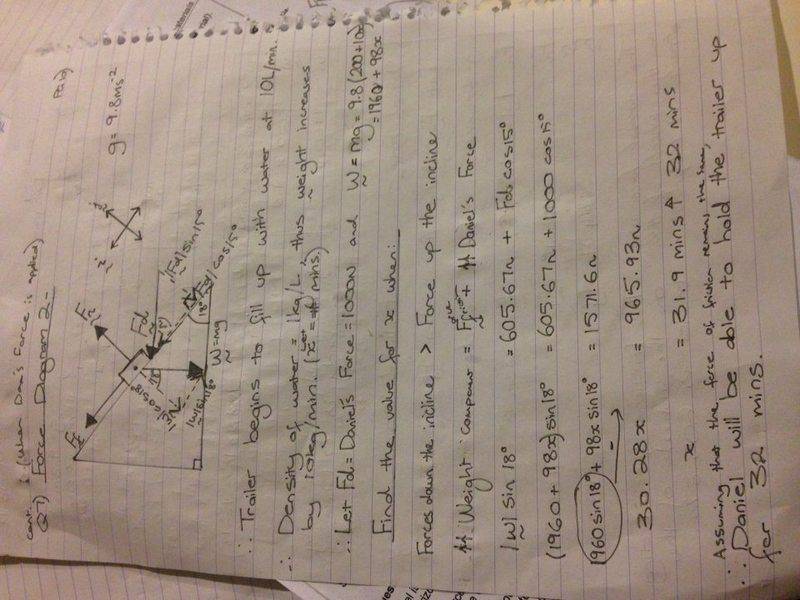 cont. (When Dan's Force is applied)
Q7) Force Diagram 2 -
Pg 6)
g = 9.8ms⁻²
Fd
|Fd| sin15°
|Fd| cos15°
18°
|W|cos18°
|W|sin18°
W = mg
∴ Trailer begins to fill up with water at 10L/min.
∴ Density of water = 1kg/L ∴ thus weight increases
by 10kg/min. (Let x = # mins.)
∴ Let Fd = Daniel's Force = 1000N and W = mg = 9.8(200+10x)
= 1960 + 98x
Find the value for x when:-
Forces down the incline > Force up the incline
// Weight component = Friction + // Daniel's Force
|W| sin 18° = 605.67n + Fd cos15°
(1960 + 98x) sin18° = 605.67n + 1000 cos15°
1960 sin18° + 98x sin18° = 1571.6n
30.28x = 965.93n
x = 31.9 mins ↑ 32 mins
Assuming that the force of friction remains the same,
∴ Daniel will be able to hold the trailer up
for 32 mins.